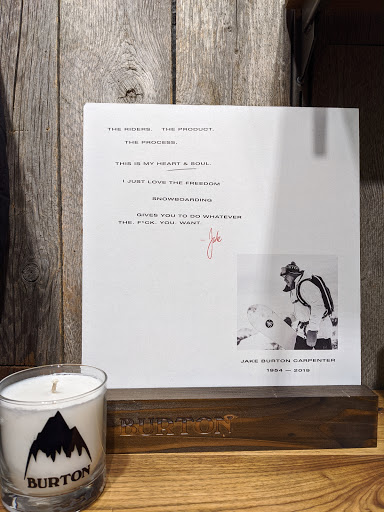 THE RIDERS. THE PRODUCT.
THE PROCESS.
THIS IS MY HEART & SOUL.
I JUST LOVE THE FREEDOM
SNOWBOARDING
GIVES YOU TO DO WHATEVER
THE. F*CK. YOU. WANT.
- Jake
JAKE BURTON CARPENTER
1954 — 2019
BURTON
BURTON